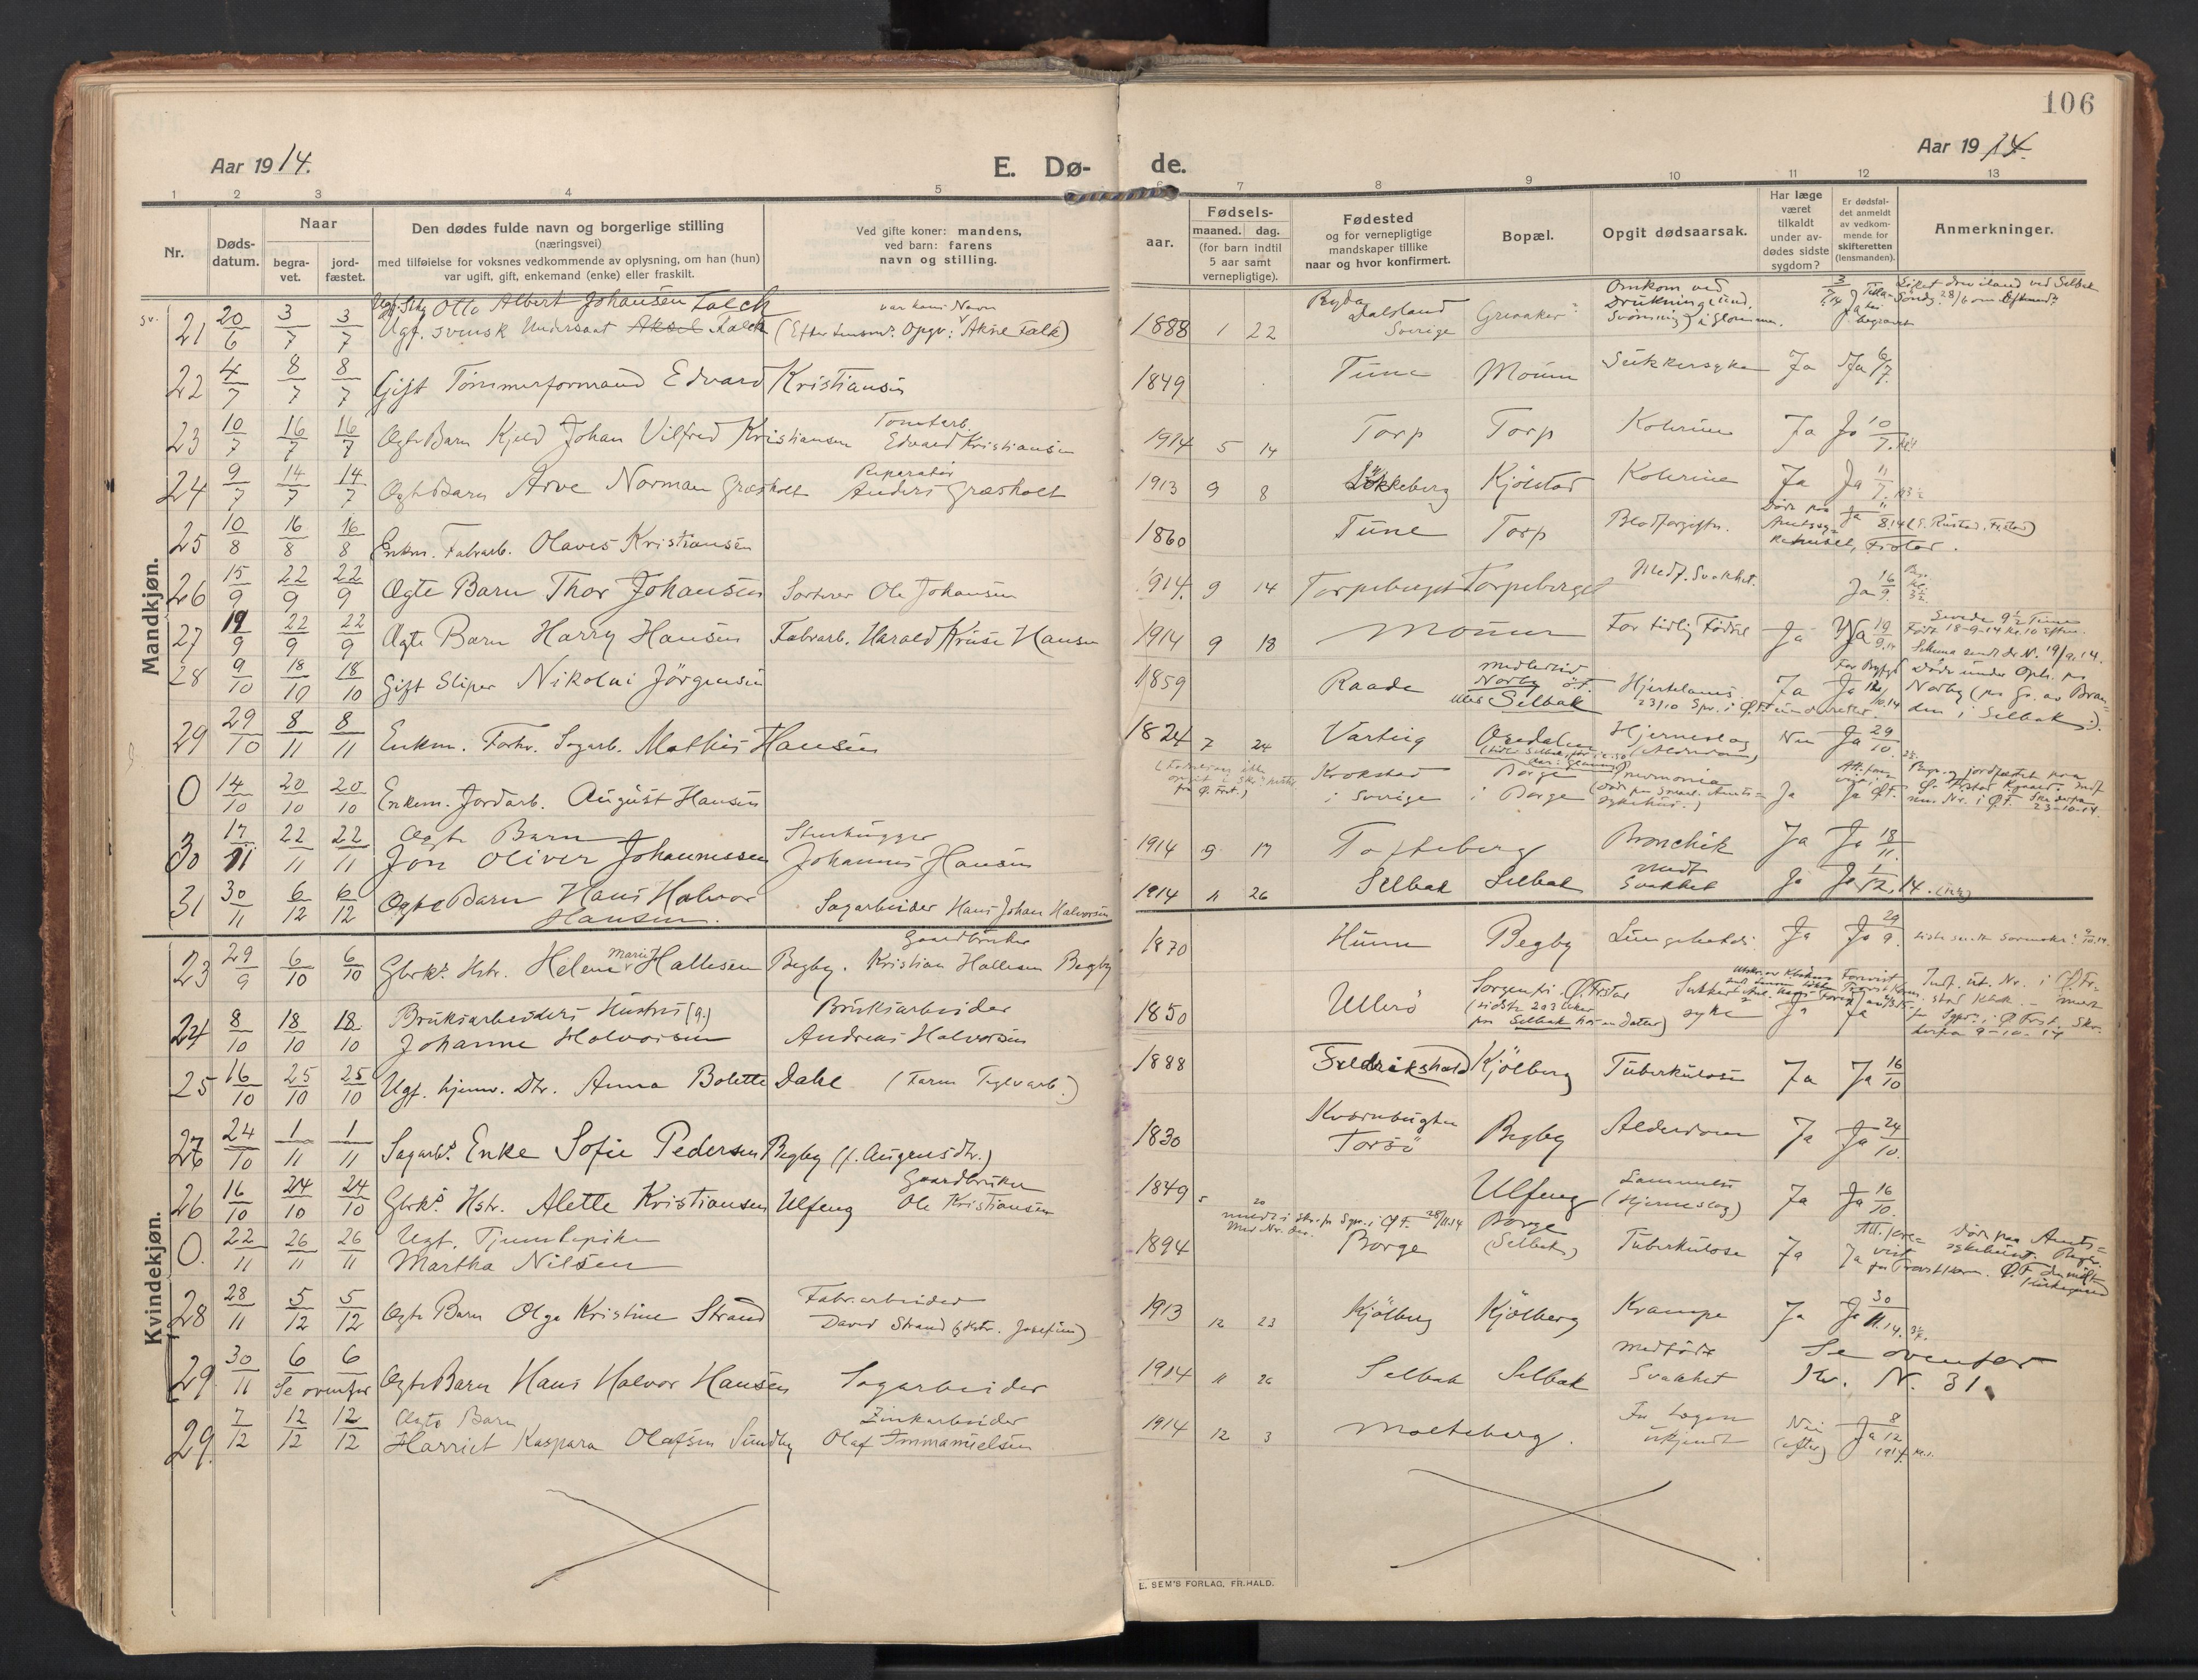 106
Aar 1914.
E. Dø-
de.
Aar 1914.
1 2 3 4 5 6 7 8 9 10 11 12 13
Nr.
Døds-
datum.
Naar
begra-
vet.
jord-
fæstet.
Den dødes fulde navn og borgerlige stilling
(næringsvei)
med tilføielse for voksnes vedkommende av oplysning, om han (hun)
var ugift, gift, enkemand (enke) eller fraskilt.
Ved gifte koner: mandens,
ved barn: farens
navn og stilling.
aar.
Fødsels-
maaned. dag.
(for barn indtil
5 aar samt
vernepligtige).
Fødested
og for vernepligtige
mandskaper tillike
naar og hvor konfirmert.
Bopæl.
Opgit dødsaarsak.
Har læge
været
tilkaldt
under av-
dødes sidste
sygdom?
Er dødsfal-
det anmeldt
av vedkom-
mende for
skifteretten
(lensmanden).
Anmerkninger.
Mandkjøn.
Otto Albert Johansen Falck var hans Navn
21 20/6 3/7 3/7 Ugf. svensk Undersaat Aksel Falck (Efter Lensm. Opgv. Aksel Falk) 1888 1 22 Dalsland
Sverige Greaaker Omkom ved
Drukning
22 4/7 8/7 8/7 Gift Tømmerformand Edvard Kristiansen 1849 Tune Moum Sukkersyke Ja Ja 6/7
23 10/7 16/7 16/7 Ægte Barn Kjeld Johan Vilfred Kristiansen Tomtarb.
Edvard Kristiansen 1914 5 14 Torp Torp Kolerine Ja Ja 10/7
24 9/7 14/7 14/7 Ægte Barn Arve Norman Græsholt Reparatør
Anders Græsholt 1913 9 8 Lökkeberg Kjölstad Kolerine Ja Ja 11/7
25 10/8 16/8 16/8 Enkm. Fabrarb. Olaves Kristiansen 1860 Tune Torp Blodforgiftn. Døde paa
Amtssyge-
huset, Frstad. Ja 11/8 14
26 15/9 22/9 22/9 Ægte Barn Thor Johansen Sorterer Ole Johansen 1914 9 14 Torpeberget Torpeberget Medf. Svakhet. Ja 16/9
27 19/9 22/9 22/9 Ægte Barn Harry Hansen Fabrarb. Harald Kruse Hansen 1914 9 18 Moum For tidlig Fødsel Ja Ja 19/9 14 Levede 9½ Time
Født 18-9-14 Kl. 10 Efterm.
28 9/10 18/10 18/10 Gift Sliper Nikolai Jörgensen 1859 Raade Norby
Selbak Hjertelams. Ja Ja
29 29/10 8/11 8/11 Enkm. Forhv. Sagarb. Mathis Hansen 1824 7 24 Varteig Hjerneslag
(Alderdom) Nei Ja 29/10
0 14/10 20/10 20/10 Enkem. Jordarb. August Hansen Krokstad
i Sverige Borge
i Borge Pneumonia Ja Ja
30 17/11 22/11 22/11 Ægte Barn
Jon Oliver Johannessen Stenhugger
Johannes Hansen 1914 9 17 Tofteberg Bronchit Ja Ja 18/11.
31 30/11 6/12 6/12 Ægte Barn Hans Halvor
Hansen. Sagarbeider Hans Johan Halvorsen 1914 11 26 Selbak Selbak Medf.
Svakhet Ja Ja 1/12. 14.
Kvindekjøn.
23 29/9 6/10 6/10 Gbrks. Hstr. Helene Marie Hallesen Begby. Gaardbruker
Kristian Hallesen Begby 1870 Hunn Begby Ja Ja 29/9
24 8/10 18/10 18/10 Bruksarbeiders Hustru (g.)
Johanne Halvorsen Bruksarbeider
Andreas Halvorsen 1850 Ullerö Sorgenfri Ø. Frstad
(sidste 2 a 3 Uker
paa Selbak hos en Datter) Sukker-
syke Ja Ja
25 16/10 25/10 25/10 Ugf. hjemv. Dtr. Anna Bolette Dahl (Faren Teglvarb.) 1888 Fredrikshald Kjölberg Tuberkulose Ja Ja 16/10
27 24/10 1/11 1/11 Sagarbs. Enke Sofie Pedersen Begby (f. Augensdtr.) 1830 Kvernbugten
Torsö Begby Alderdom Ja Ja 24/10.
26 16/10 24/10 24/10 Gbrks. Hstr. Alette Kristiansen Ulfeng Gaardbruker
Ole Kristiansen 1849 5 20 Ulfeng Lammelse
(Hjerneslag) Ja Ja 16/10.
0. 22/11 26/11 26/11 Ugt. Tjenestepike
Martha Nilsen 1894 Borge Borge
(Selbak) Tuberkulose Ja Ja Død paa Amts-
sykehuset.
28 28/11 5/12 5/12 Ægte Barn Olga Kristine Strand Fabr.arbeider
David Strand (Hstr. Josefine) 1913 12 23 Kjölberg Kjölberg Krampe Ja Ja 30/11. 14.
29 30/11 6 6 Se ovenfor Ægte Barn Hans Halvor Hansen Sagarbeider 1914 11 26 Selbak Selbak medfödt
Svakhet Se ovenfor
N. 31.
29. 7/12 12/12 12/12 Ægte Barn
Harriet Kaspara Olafsen Sundby Zinkarbeider
Olaf Immanuelsen 1914 12 3 Molteberg. For Lægen
ukjendt Nei
(efter) Ja 8/12
1914
E. SEM'S FORLAG, FR.HALD.